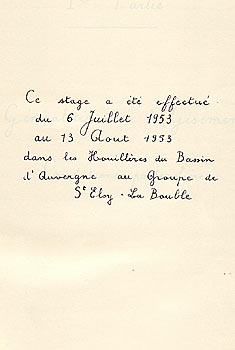 Ce stage a été effectué
du 6 Juillet 1953
au 13 Aout 1953
dans les Houillères du Bassin
d'Auvergne au Groupe de
St Eloy - La Bouble